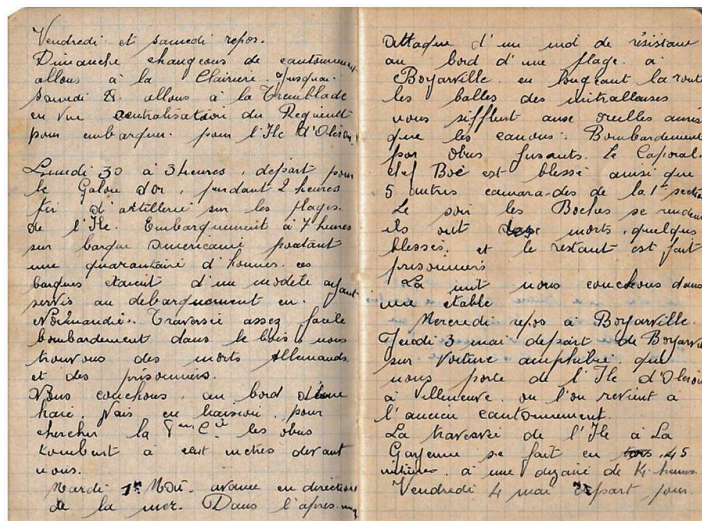 Vendredi et samedi repos.
Dimanche changeons de cantonnement
allons à la Clairière. jusqu'au
samedi 28. allons à la Tremblade
en vue centralisation du Regiment
pour embarquer. pour l'Ile d'Oleron.
Lundi 30 à 3 heures, depart pour
le Galon d'or, pendant 2 heures
tir d'artillerie sur les plages.
de l'Ile. Embarquement à 7 heures
sur barque americaine portant
une quarantaine d'hommes. ces
barques étaient d'un modèle ayant
servis au debarquement en.
Normandie. Traversée assez facile
bombardement dans le bois, nous
trouvons des morts Allemands
et des prisonniers.
Nous couchons au bord d'une
haie. Vais en liaison. pour
chercher la 7eme Cie les obus
tombent à cent mètres devant
nous.
Mardi 1er Mai. avance en direction
de la mer. Dans l'après-midi
Attaque d'un nid de résistance
au bord d'une plage. à
Boyarville. en longeant la route
les balles des mitrailleuses
nous sifflent aux oreilles ainsi
que les canons. Bombardement
par obus fusants. Le Caporal-
chef Boé est blessé ainsi que
5 autres camarades de la 1e section
Le soir les Boches se rendent
ils ont morts, quelques
blessés, et le restant est fait
prisonniers
La nuit nous couchons dans
une etable
Mercredi repos à Boyarville.
Jeudi 3 mai depart de Boyarville
sur voiture amphibie qui
nous porte de l'Ile d'Oleron
à Villeneuve. ou l'on revient à
l'ancien cantonnement.
La traversée de l'Ile à La
Garenne se fait en 45
minutes à une dizaine de K. heures
Vendredi 4 mai depart pour